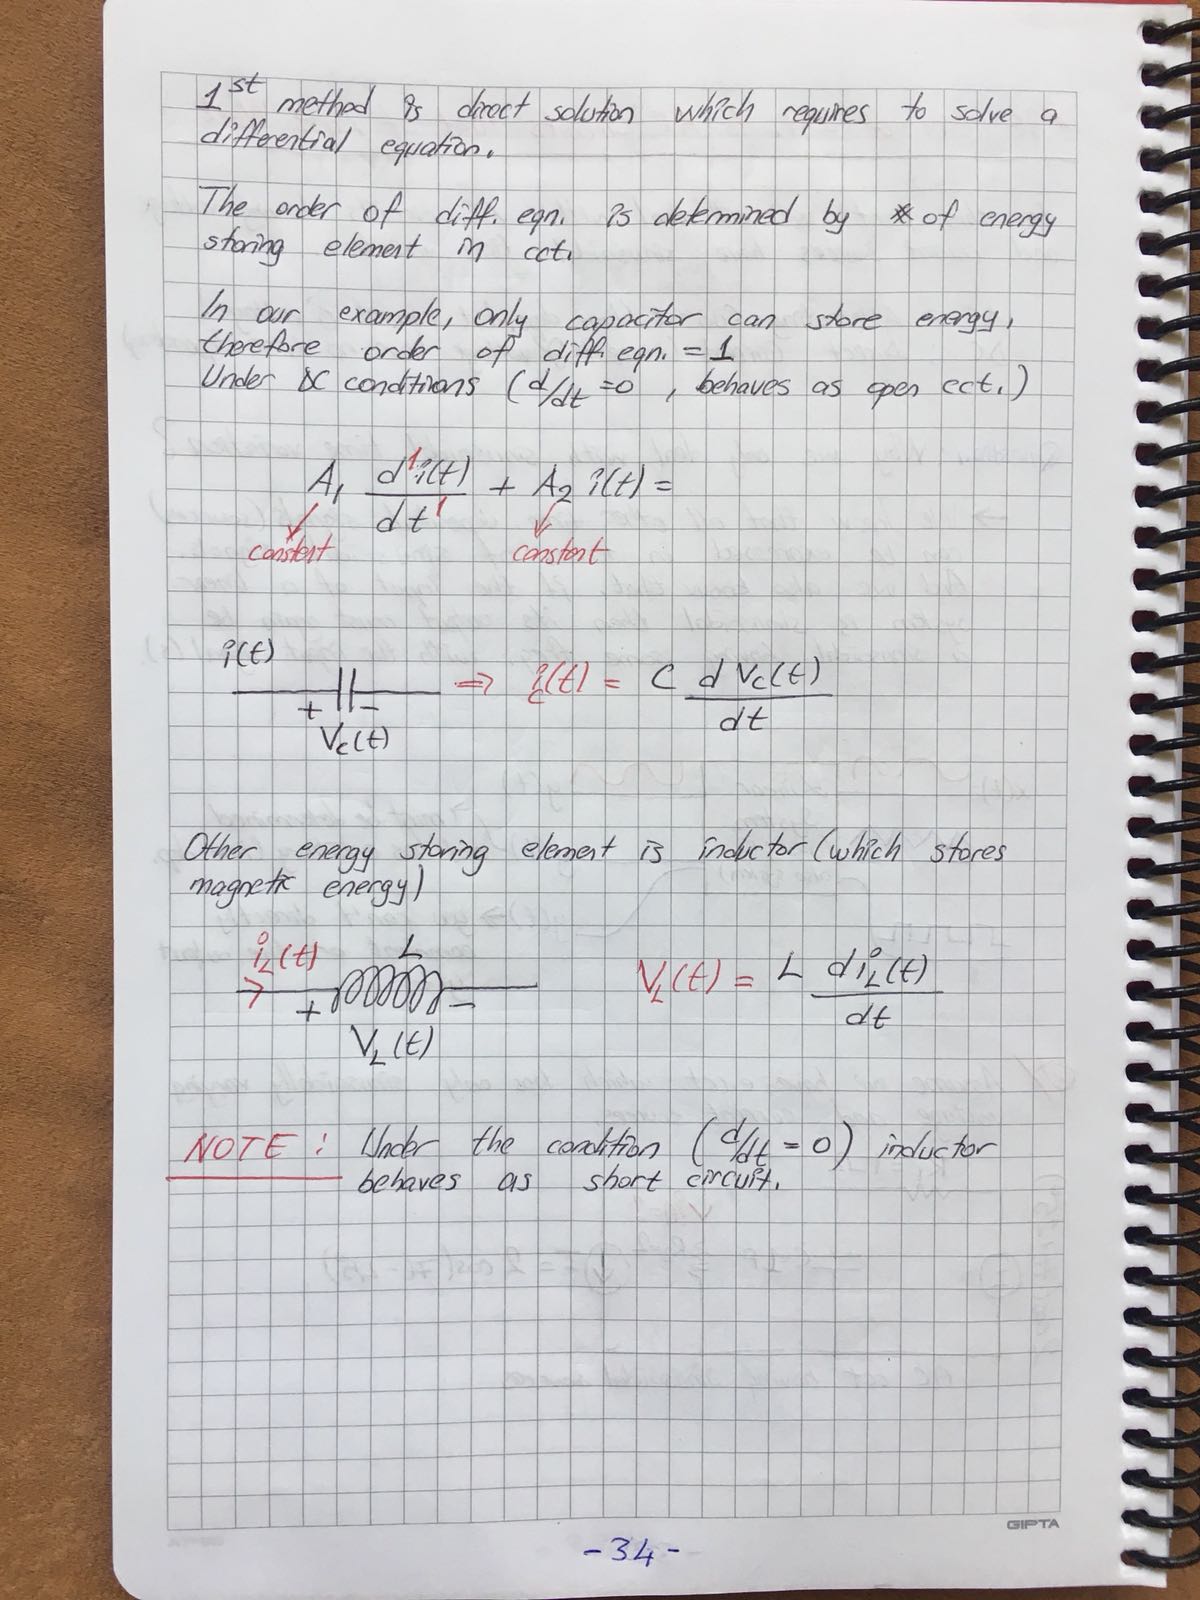 1st method is direct solution which requires to solve a
differential equation.
The order of diff. eqn. is determined by * of energy
storing element in cct.
In our example, only capacitor can store energy,
therefore order of diff. eqn. = 1
Under DC conditions (d/dt = 0 , behaves as open cct.)
A1 d¹i(t)/dt¹ + A2 i(t) =
constant constant
i(t)
⇒ ic(t) = C dVc(t)/dt
+ -
Vc(t)
Other energy storing element is inductor (which stores
magnetic energy)
iL(t) L
+ -
VL(t)
VL(t) = L diL(t)/dt
NOTE : Under the condition (d/dt = 0) inductor
behaves as short circuit.
GIPTA
-34-